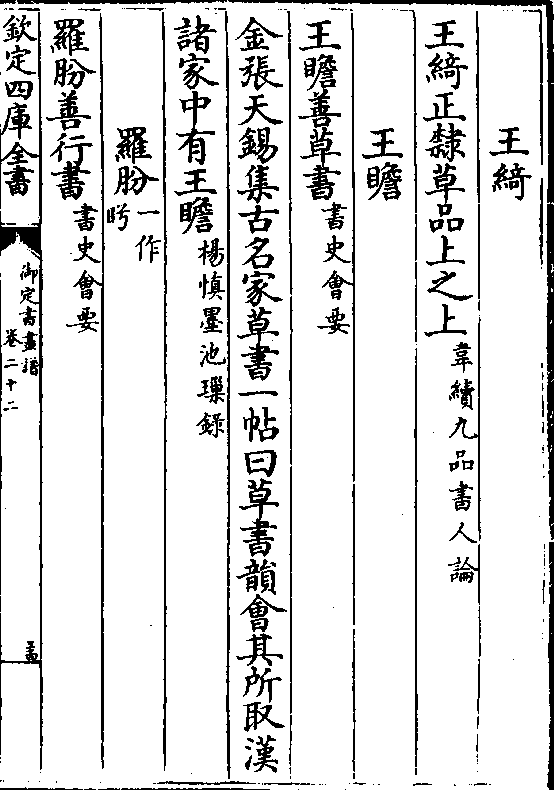 王綺
王綺正隸草品上之上韋續九品書人論
王瞻
王瞻善草書書史會要
金張天錫集古名家草書一帖曰草書韻會其所取漢
諸家中有王瞻楊慎墨池璅錄
羅肹一作肸
羅肹善行書書史會要
欽定四庫全書
御定書畫譜
卷二十二